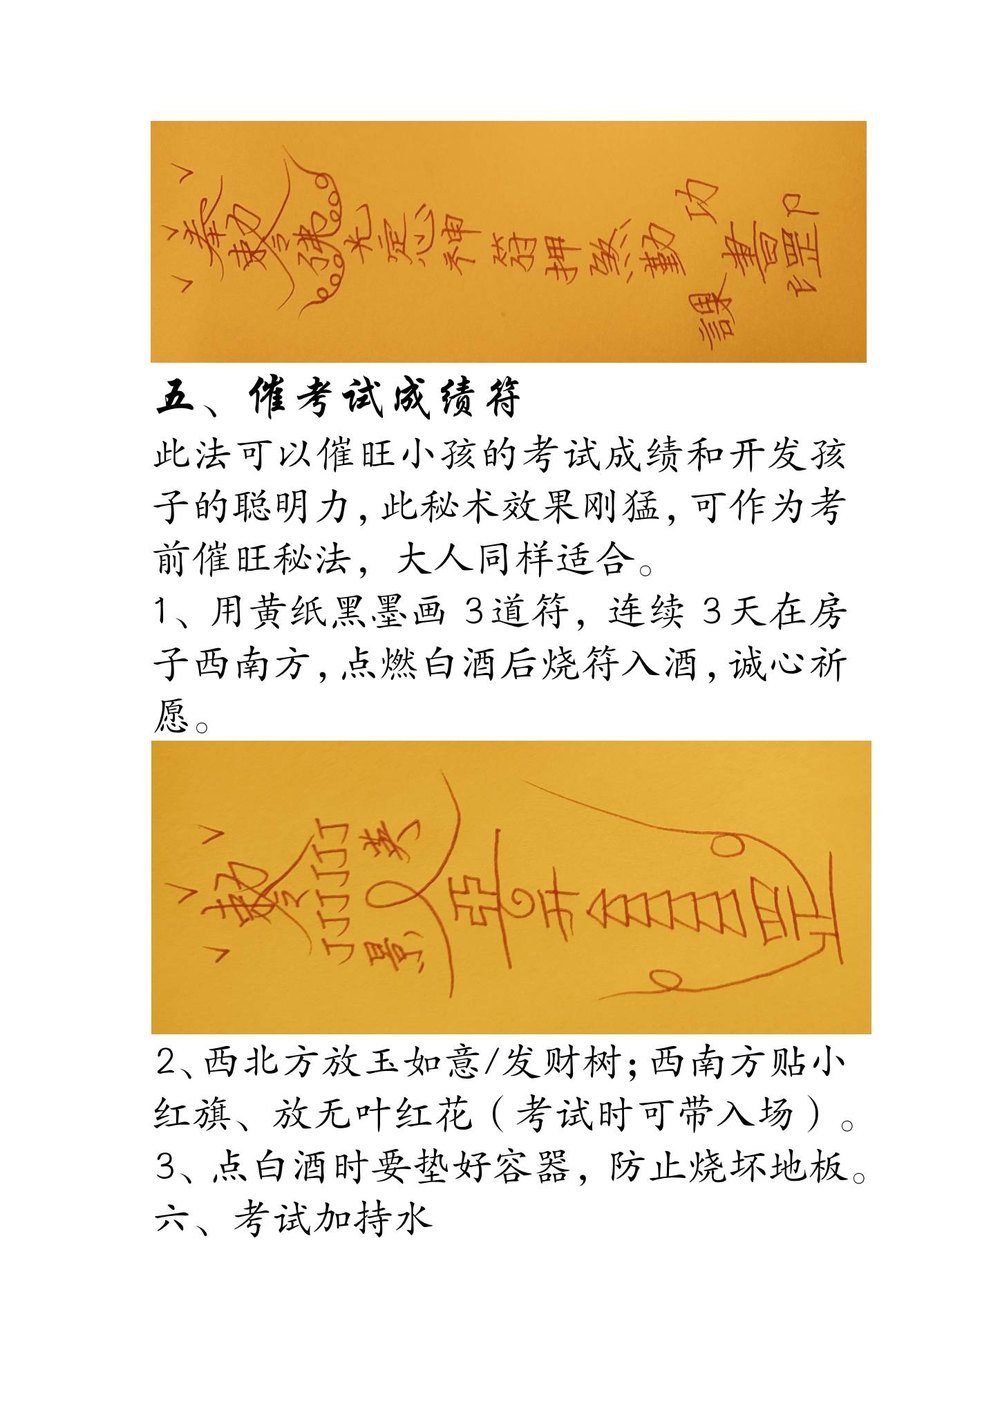 奉敕令佛光定心神符押煞勤功課書罡印
五、催考试成绩符
此法可以催旺小孩的考试成绩和开发孩
子的聪明力，此秘术效果刚猛，可作为考
前催旺秘法，大人同样适合。
1、用黄纸黑墨画 3道符，连续 3天在房
子西南方，点燃白酒后烧符入酒，诚心祈
愿。
敕令
2、西北方放玉如意/发财树；西南方贴小
红旗、放无叶红花（考试时可带入场）。
3、点白酒时要垫好容器，防止烧坏地板。
六、考试加持水